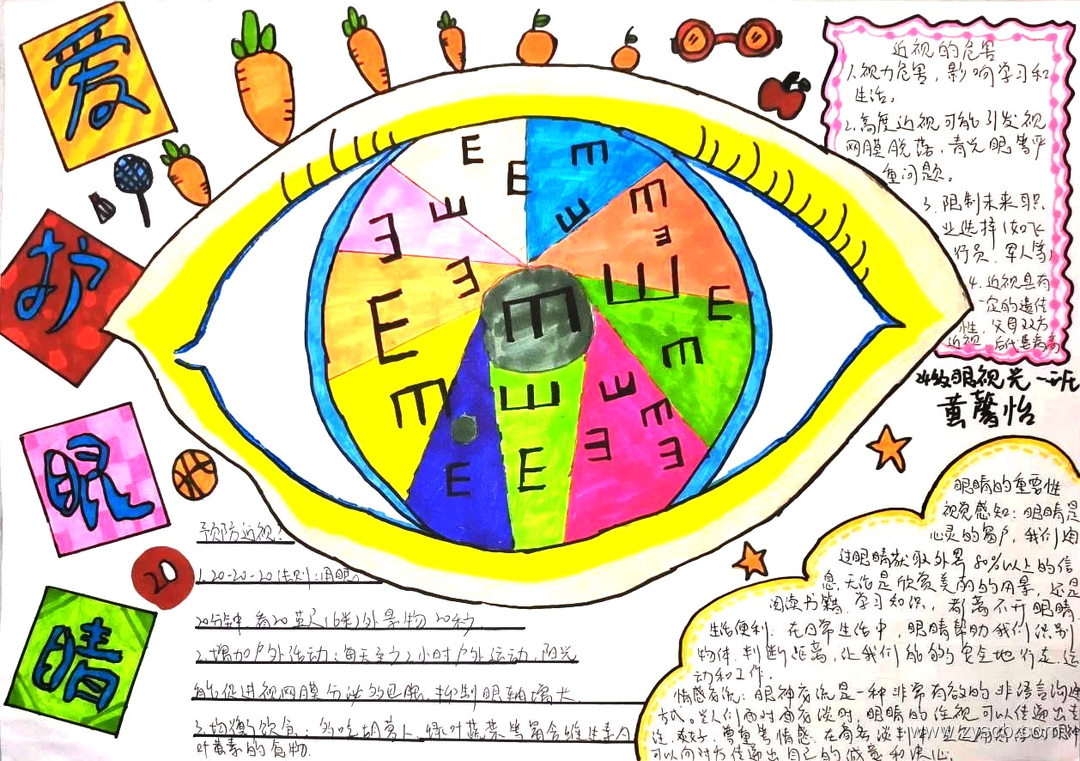 爱
护
眼
睛
近视的危害
1.视力危害，影响学习和
生活。
2.高度近视可能引发视
网膜脱落，青光眼等严
重问题。
3.限制未来职
业选择(如飞
行员，军人等)
4.近视具有
一定的遗传
性，父母双方
近视，后代患病高
眼视光一班
黄馨怡
E E E E
E E E E
E E E E
E E E E
E E E E
E E E E
20
予防近视?
1.20-20-20法则:用眼
20分钟 看20英尺(6米)外景物 20秒
2.增加户外活动:每天至少2小时户外运动，阳光
能促进视网膜分泌多巴胺，抑制眼轴增大
3.均衡饮食:多吃胡萝卜，绿叶蔬菜等富含维生素A
叶黄素的食物.
眼睛的重要性
视觉感知:眼睛是
心灵的窗户，我们通
过眼睛获取外界80%以上的信
息，无论是欣赏美丽的风景，还是
阅读书籍，学习知识，都离不开眼睛.
生活便利:在日常生活中，眼睛帮助我们识别
物体，判断距离，让我们能够安全地行走，运
动和工作.
情感交流:眼神交流是一种非常有效的非语言沟通
方式。当人们面对面交谈时，眼睛的注视可以传递出
友好，尊重等情感，在商务谈判中
可以向对方传递出自己的诚意和决心。